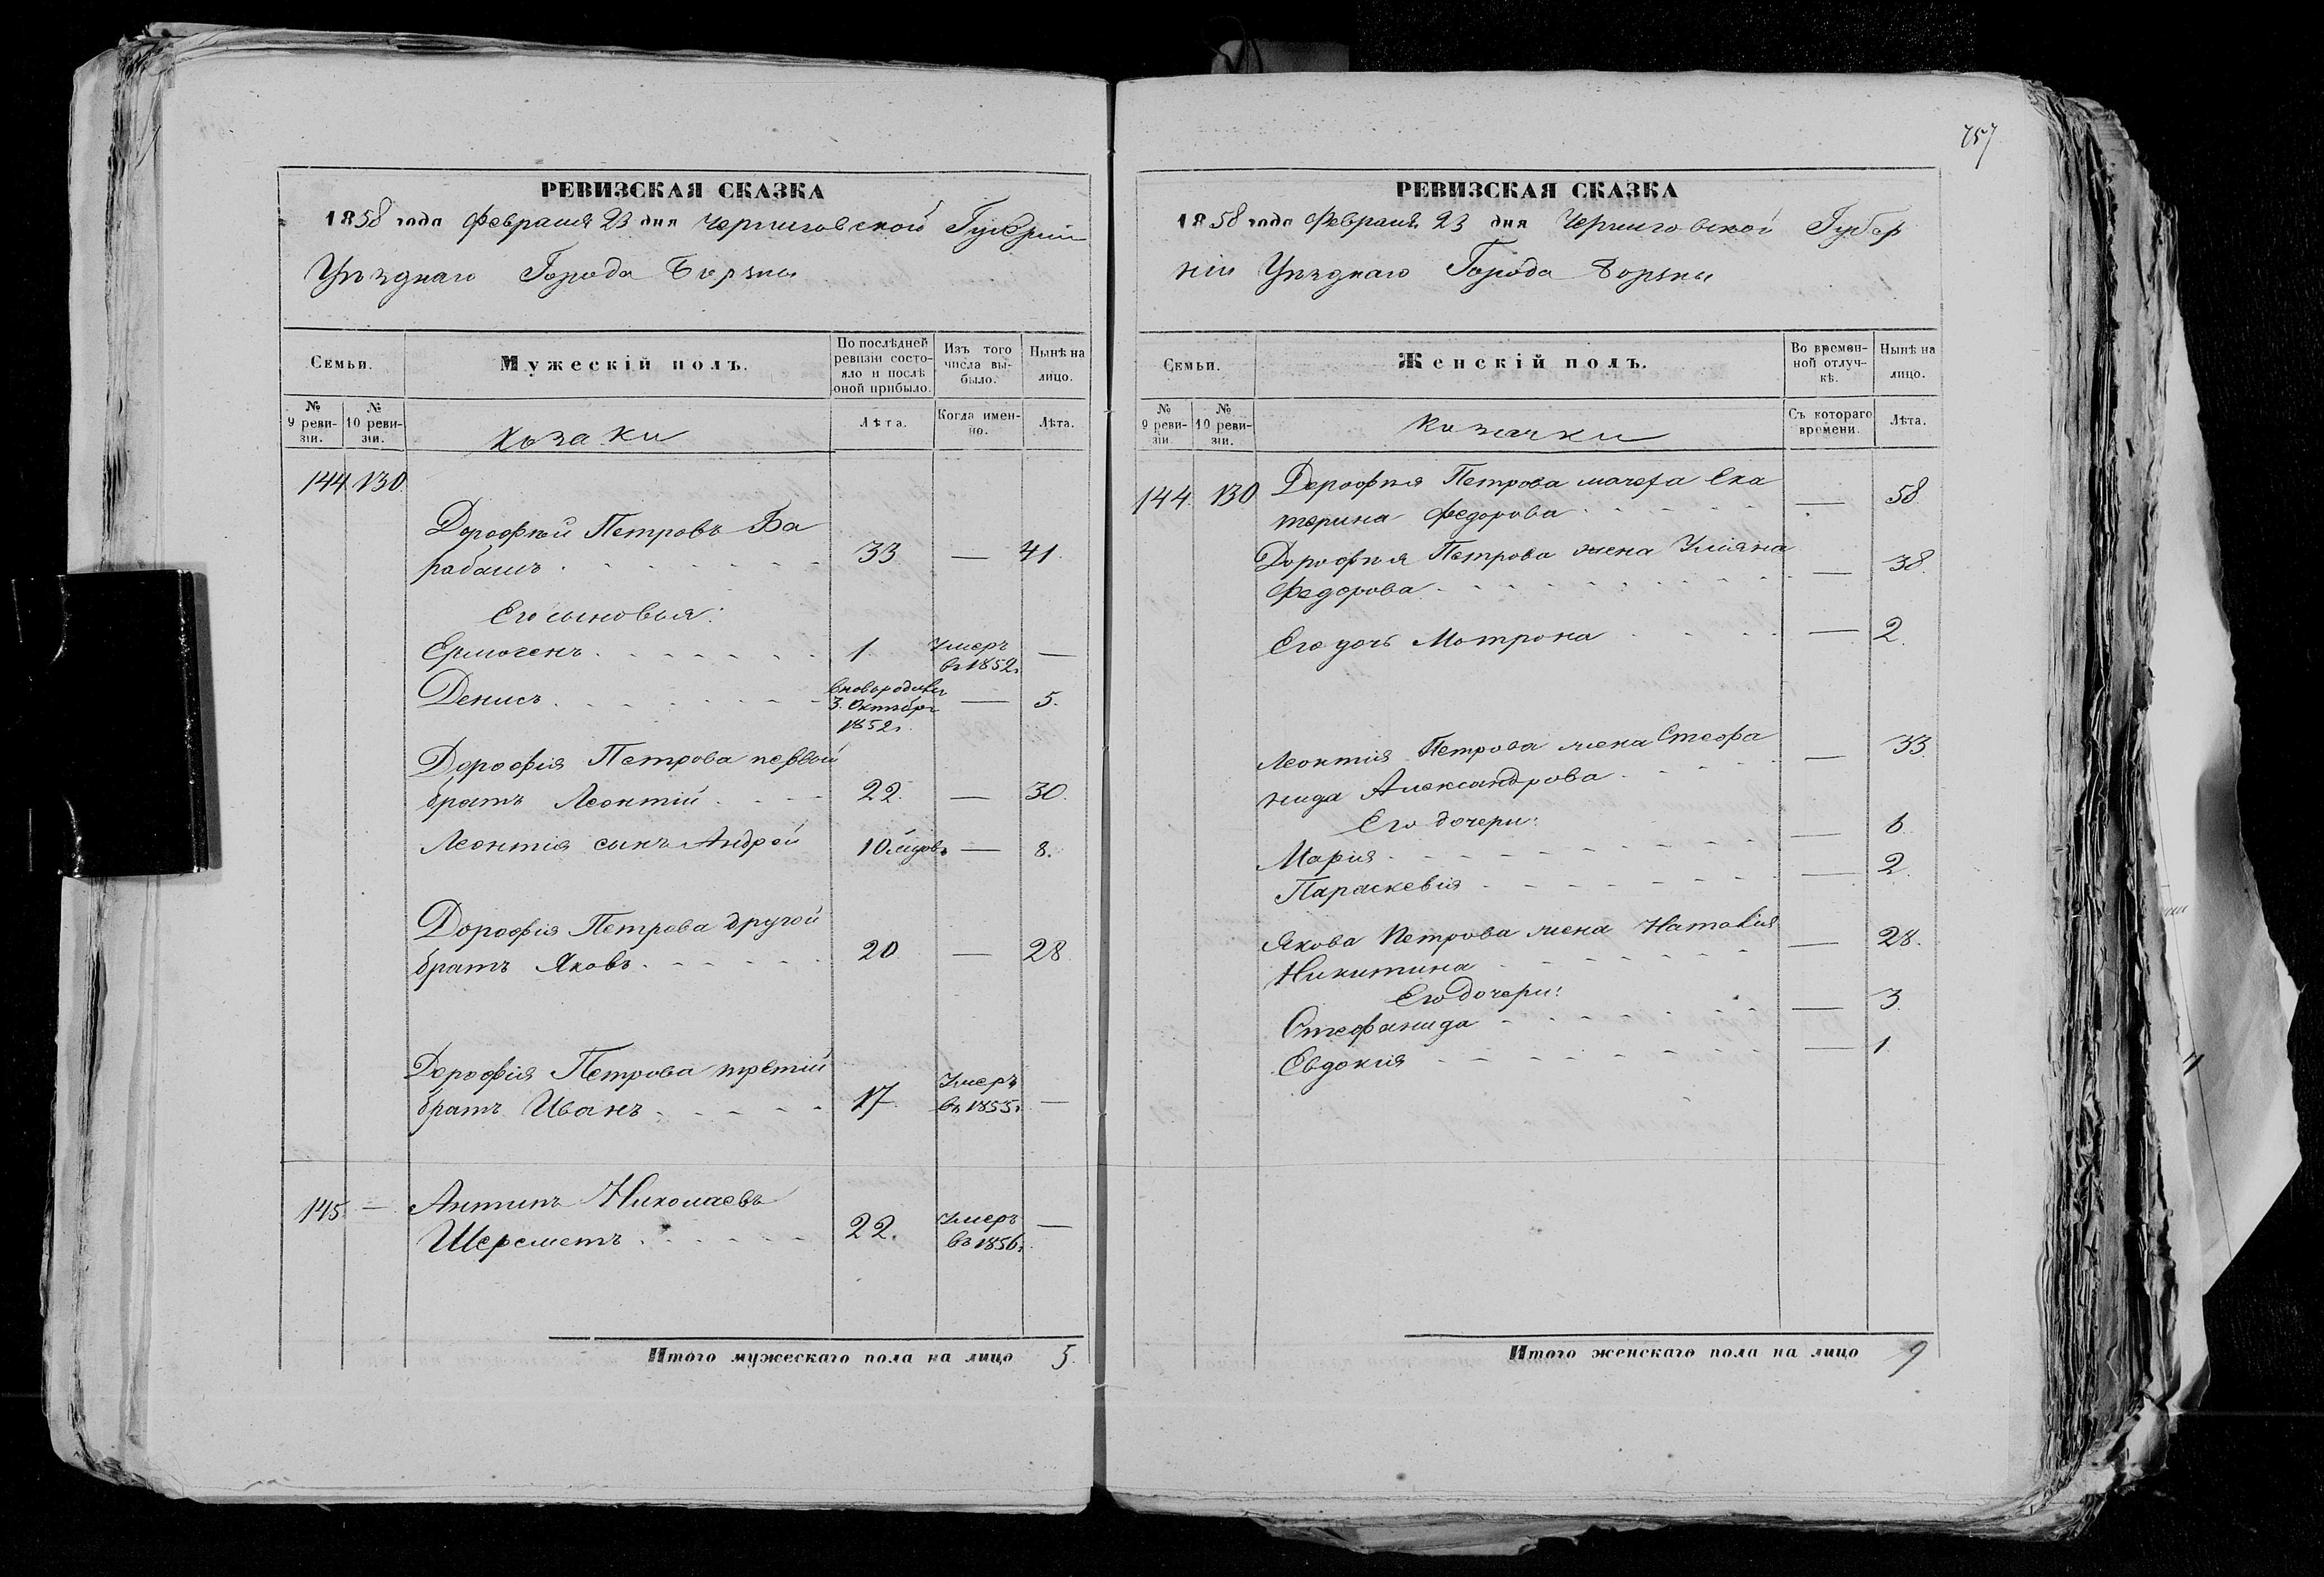 РЕВИЗСКАЯ СКАЗКА
1858 года Февраля 23 дня Черниговской Губерніи
Уѣзднаго Города Борзны
Семьи.
Мужескій полъ.
По послѣдней ревизіи состояло и послѣ оной прибыло.
Изъ того числа выбыло.
Нынѣ на лицо.
№ 9 ревизіи.
№ 10 ревизіи.
Козаки
Лѣта.
Когда именно.
Лѣта.
144 130
Дорофѣй Петровъ Ба
рабашъ 33 — 41.
Его сыновья:
Ермогенъ 1 Умеръ в 1852г —
Денисъ
вновьродивш
3. Октября
1852г.
— 5.
Дорофія Петрова первый
братъ Леонтій 22. — 30.
Леонтія сынъ Андрей 10 мѣсяцовъ — 8.
Дорофія Петрова другой
братъ Яковъ 20 — 28
Дорофія Петрова третій
братъ Иванъ 17 Умеръ въ 1855г —
145 — Антипъ Николаевъ
Шереметъ 22. Умеръ въ 1856г. —
Итого мужескаго пола на лицо 5.
757
РЕВИЗСКАЯ СКАЗКА
1858 года Февраля 23 дня Черниговской Губер
ніи Уѣзднаго Города Борзны
Семьи.
Женскій полъ.
Во временной отлучкѣ.
Нынѣ на лицо.
№ 9 ревизіи.
№ 10 ревизіи.
Козачки
Съ котораго времени.
Лѣта.
144 130 Дорофѣя Петрова мачеха Ека
терина Федорова — 58
Дорофѣя Петрова жена Уліяна
Федорова — 38.
Его дочь Мотрона — 2.
Леонтія Петрова жена Стефа
нида Александрова — 33.
Его дочери:
Марія — 6
Параскевія — 2.
Якова Петрова жена Наталія
Никитина — 28.
Его дочери:
Стефанида — 3.
Евдокия — 1.
Итого женскаго пола на лицо 9